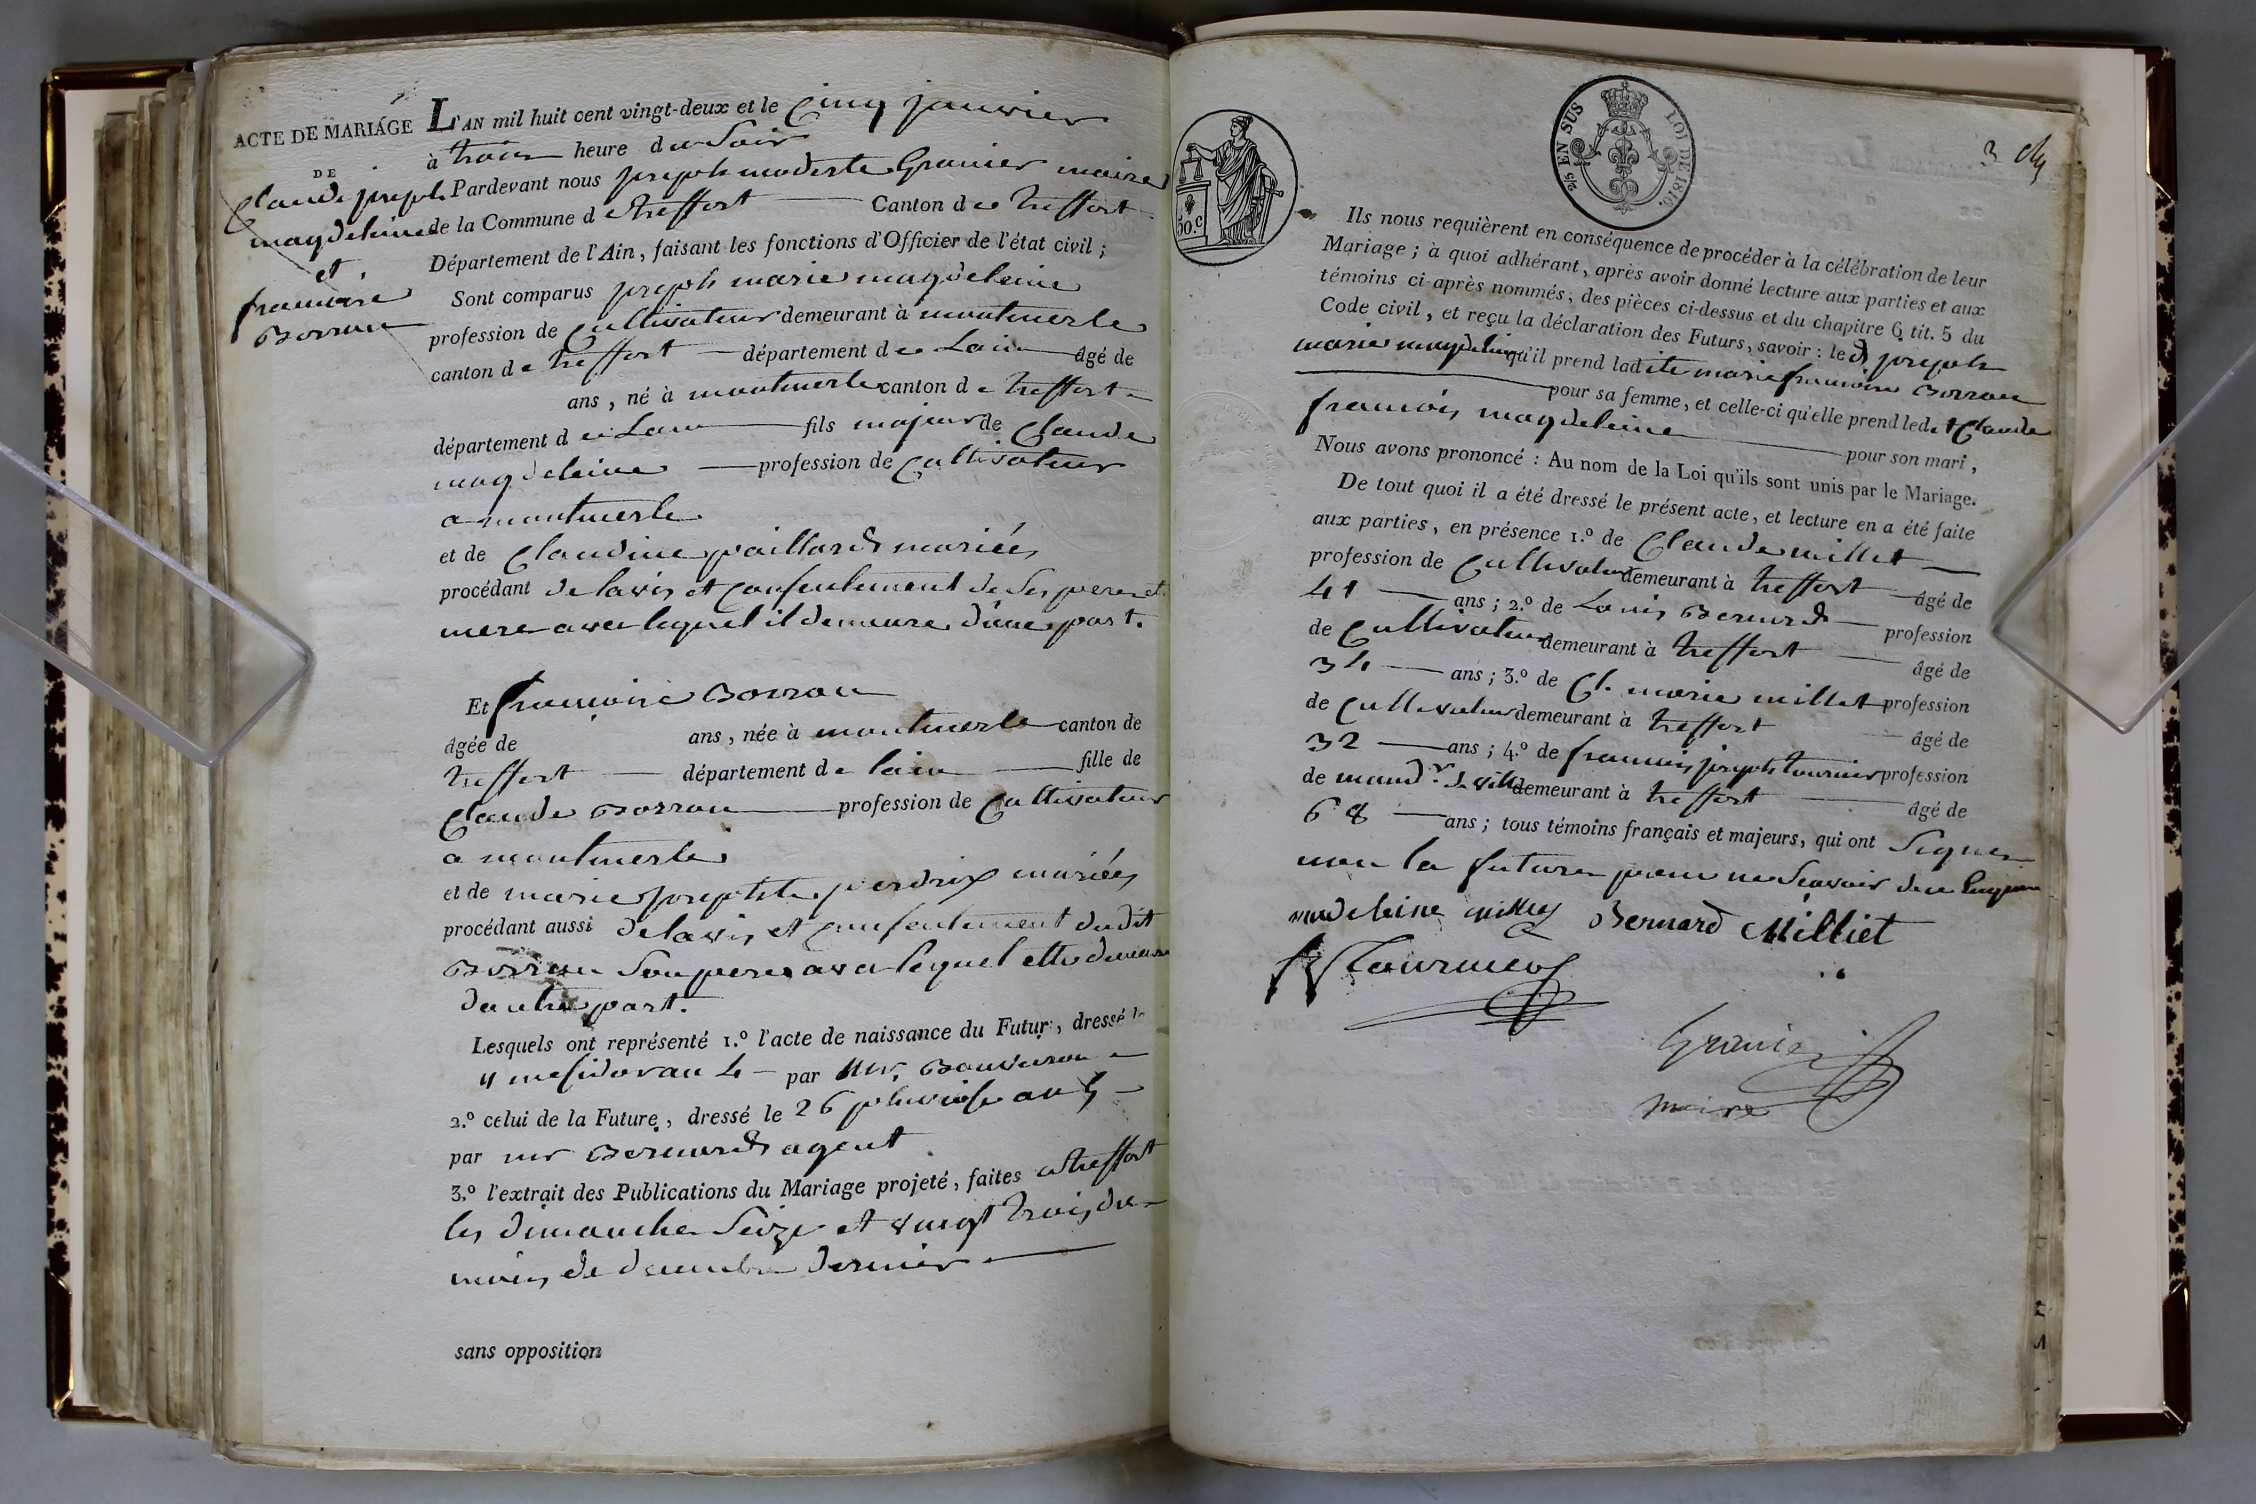 ACTE DE MARIAGE
DE
Claude joseph
magdeleine
et
francoise
Borron
L'AN mil huit cent vingt-deux et le Cinq janvier
à trois heure du Soir
Pardevant nous joseph modeste Granier maire
de la Commune de treffort Canton de treffort
Département de l'Ain, faisant les fonctions d'Officier de l'état civil;
Sont comparus joseph marie magdeleine
profession de Cultivateur demeurant à montmerle
canton de treffort département de Lain âgé de
ans, né à montmerle canton de treffort
département de Lain fils majeur de Claude
magdeleine profession de Cultivateur
a montmerle
et de Claudine paillard mariés
procédant de lavis et consentement de ses pere et
mere avec lequel il demeure d'une part.
Et francoise Borron
âgée de ans, née à montmerle canton de
treffort département de lain fille de
Claude Borron profession de Cultivateur
a montmerle
et de marie josephte perdrix mariés
procédant aussi de lavis et consentement dudit
Borron Son pere avec lequel elle demeure
dautre part.
Lesquels ont représenté 1.º l'acte de naissance du Futur, dressé le
11 messidor an 4 par Mr.
2.º celui de la Future, dressé le 26 pluviose an 5
par mr Bernard agent
3.º l'extrait des Publications du Mariage projeté, faites a treffort
les dimanche Seize et vingt trois du
mois de decembre dernier
sans opposition
50.C
2/5 EN SUS LOI DE 1816.
3
Ils nous requièrent en conséquence de procéder à la célébration de leur
Mariage; à quoi adhérant, après avoir donné lecture aux parties et aux
témoins ci-après nommés, des pièces ci-dessus et du chapitre 6 tit. 5 du
Code civil, et reçu la déclaration des Futurs, savoir: led joseph
marie magdeleine qu'il prend ladite marie francoise Borron
pour sa femme, et celle-ci qu'elle prend ledit Claude
francois magdeleine pour son mari,
Nous avons prononcé: Au nom de la Loi qu'ils sont unis par le Mariage.
De tout quoi il a été dressé le présent acte, et lecture en a été faite
aux parties, en présence 1.º de Claude millet
profession de Cultivateur demeurant à treffort âgé de
41 ans; 2.º de Louis Bernard profession
de Cultivateur demeurant à treffort âgé de
34 ans; 3.º de Cl. marie millet profession
de Cultivateur demeurant à treffort âgé de
32 ans; 4.º de francois joseph tournier profession
de mand.r de ville demeurant à treffort âgé de
68 ans; tous témoins français et majeurs, qui ont Signer
non la future pour ne Scavoir de ce Enquise
madeleine millet Bernard Milliet
Tournier
Granier
maire